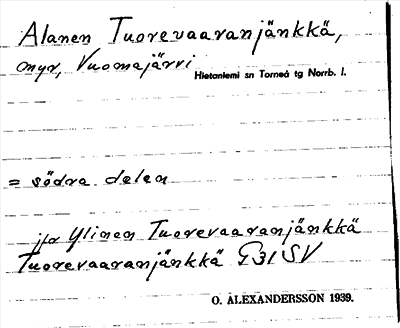 Alanen Tuorevaaranjänkkä,
myr, Vuomajärvi
Hietaniemi sn Torneå tg Norrb. l.
= södra delen
jfr Ylinen Tuorevaaranjänkkä
Tuorevaaranjänkkä G31 SV
O. ALEXANDERSSON 1939.